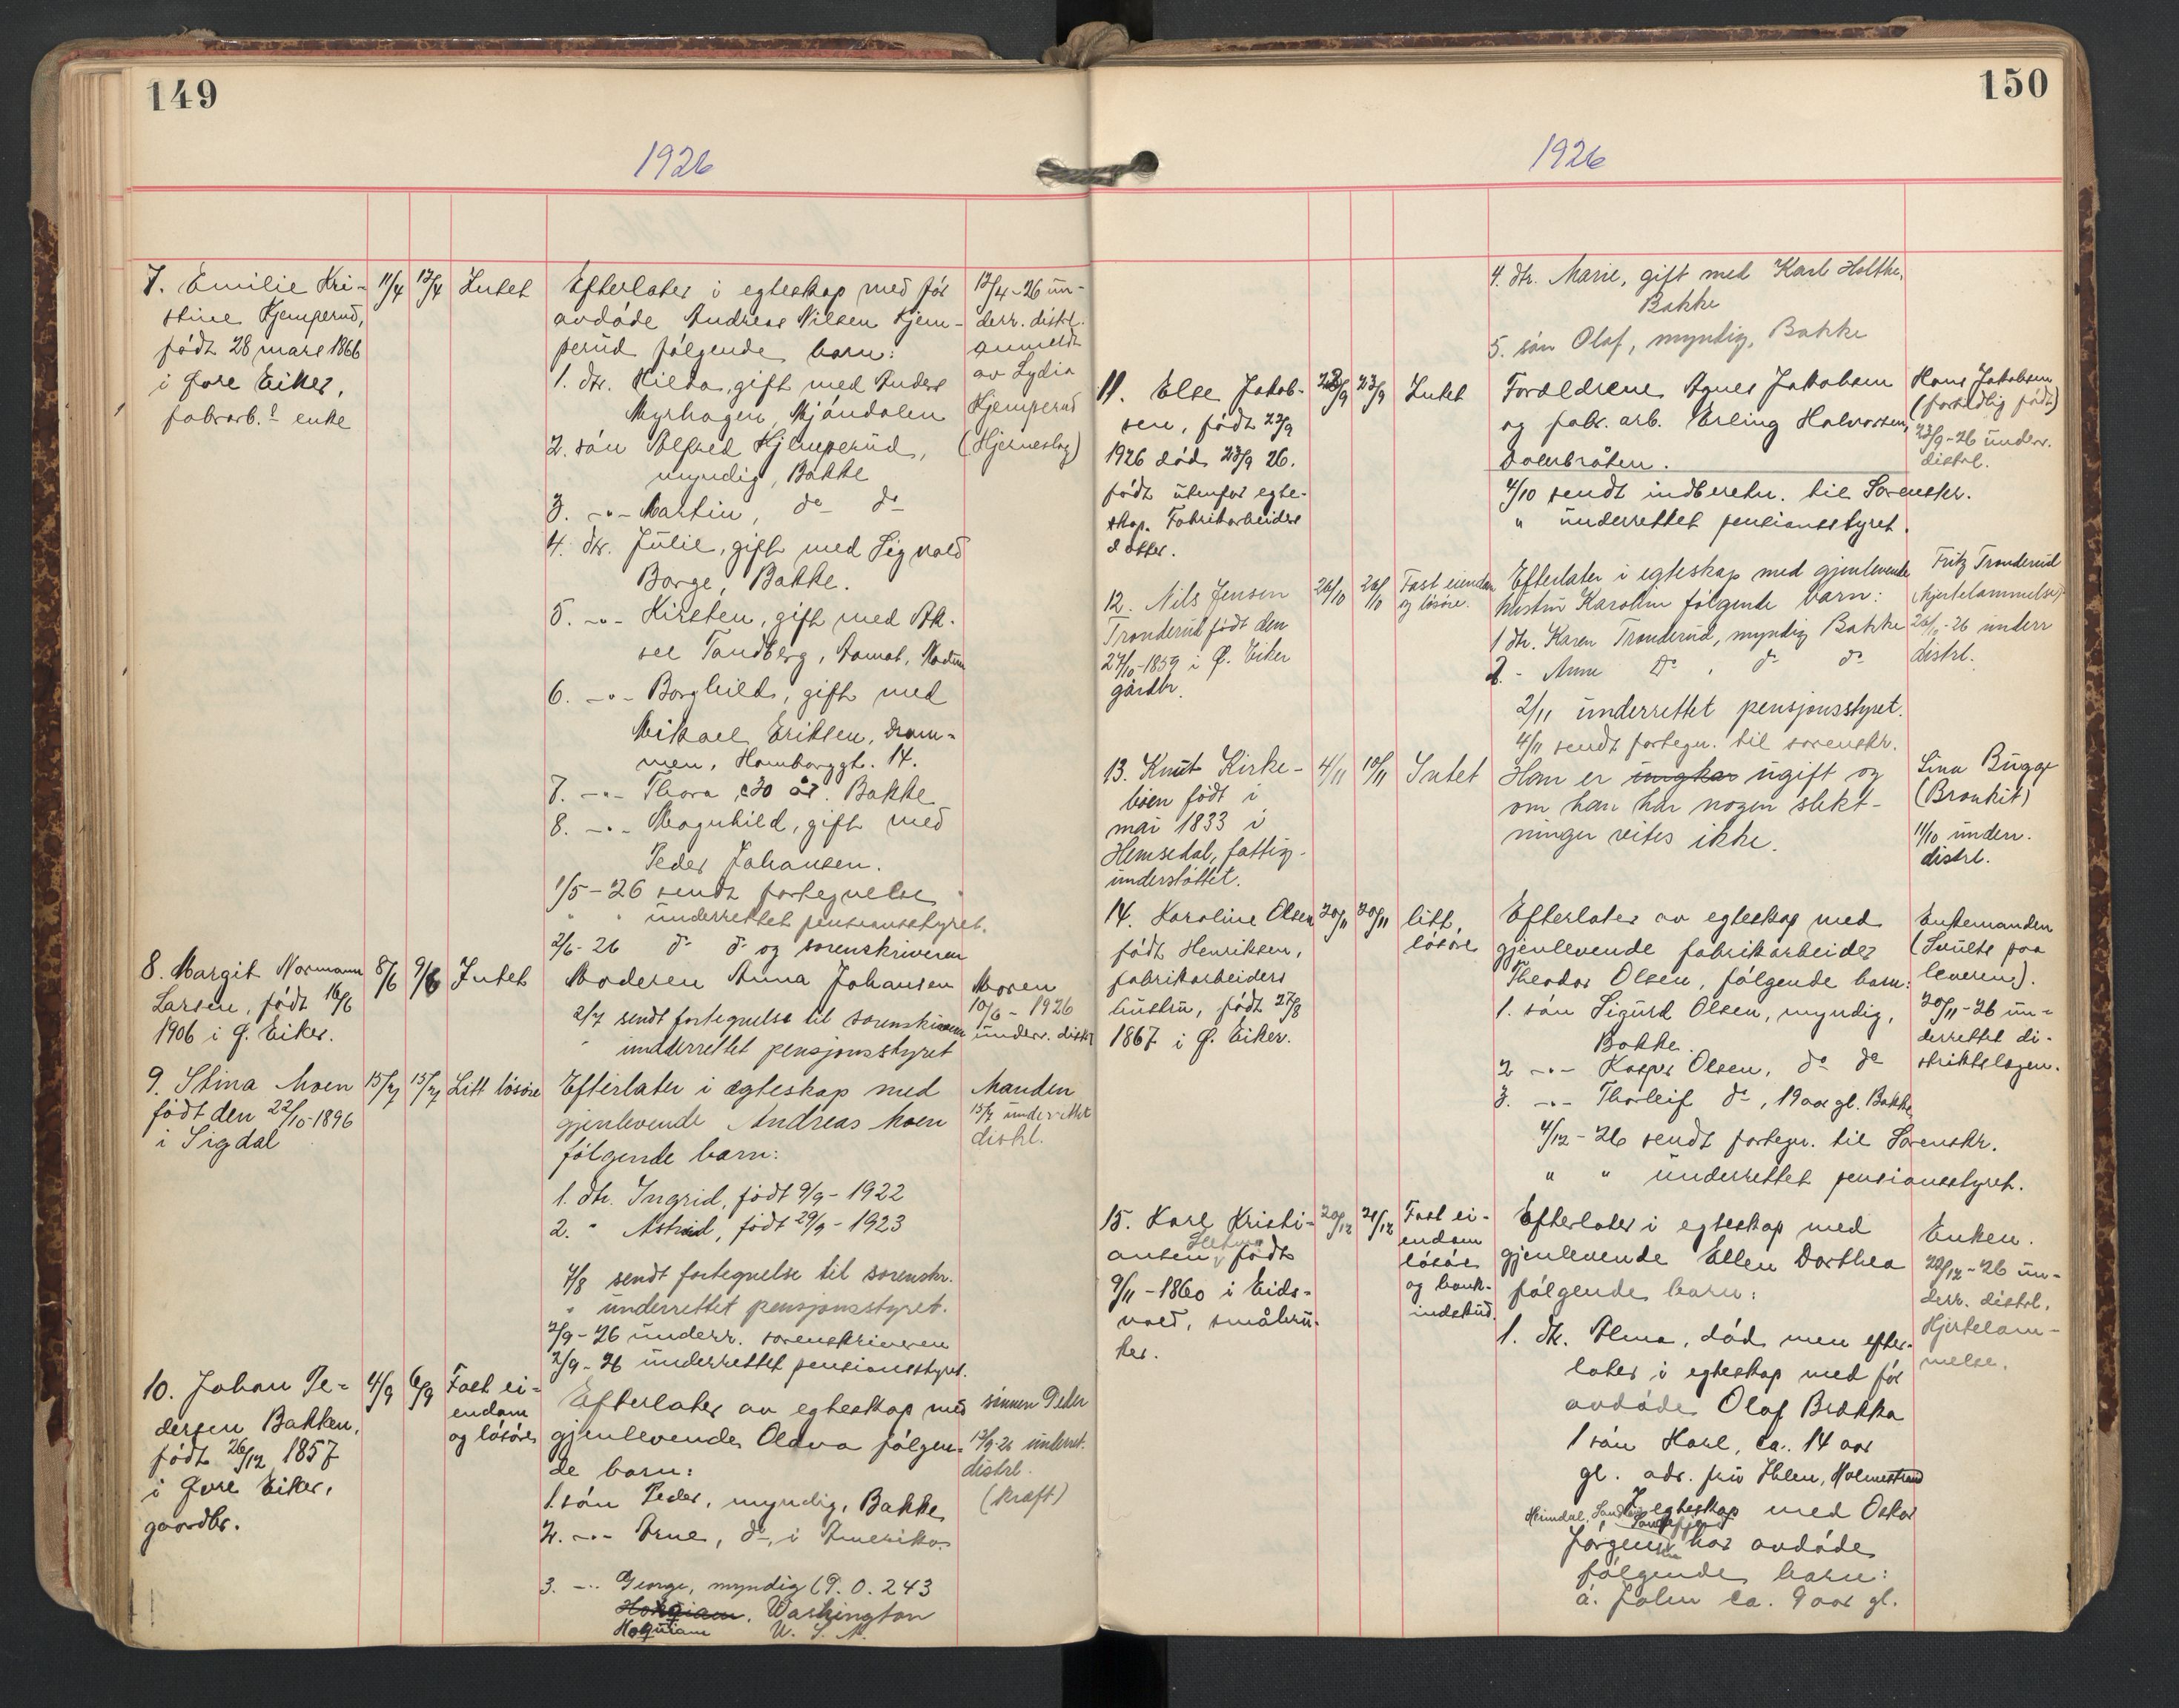 149
1926
7. Emilie Kri-
stine Kjemperud,
født 28 mars 1866
i Øvre Eiker,
fabrarb.s enke
11/4
12/4
Intet
Efterlater i egteskap med før
avdøde Andreas Nilsen Kjem-
perud følgende barn:
1. dtr. Hilda, gift med Anders
Myrhagen, Mjøndalen
2. søn Alfred Kjemperud,
myndig, Bakke
3. -"- Martin, do do
4. dtr. Julie, gift med Sigvald
Borge, Bakke.
5. -"- Kirsten, gift med Ak-
sel Tandberg, Åmot, Modum
6. -"- Borghild, gift med
Mikael Eriksen, Dram-
men, Hamborggt. 14.
7. -"- Thora, c30 år. Bakke
8. -"- Magnhild, gift med
Peder Johansen.
1/5-26 sendt fortegnelse
" " underrettet pensionsstyret.
2/6-26 do do og sorenskriveren
12/4-26 un-
derr. distrl.
anmeldt
av Lydia
Kjemperud
(Hjerneslag)
8. Margit Normann
Larsen, født 16/6
1906 i Ø. Eiker.
8/6
9/6
Intet
Moderen Anna Johansen
2/7 sendt fortegnelse til sorenskriveren
" underrettet pensjonsstyret
Moren
10/6 - 1926
underr. distr
9. Stina Moen
født den 22/10-1896
i Sigdal
15/7
15/7
Litt løsøre
Efterlater i ægteskap med
gjenlevende Andreas Moen
følgende barn:
1. dtr. Ingrid, født 9/9 - 1922
2. " Astrid, født 29/9 - 1923
4/8 sendt fortegnelse til sorenskr.
" underrettet pensjonsstyret.
2/9-26 underr. sorenskriveren
2/9-26 underrettet pensionsstyret.
Manden
15/7 underrettet
distrl.
10. Johan Pe-
dersen Bakken,
født 26/12 1857
i Øvre Eiker,
gaardbr.
4/9
6/9
Fast ei-
endom
og løsøre
Efterlater av egteskap med
gjenlevende Oldva følgen-
de barn:
1. søn Peder, myndig, Bakke
2. -"- Arne, do, i Amerika
3. -"- George, myndig (P.O. 243
Hoquiam, Washington
Hoquiam U. S. A.
sønnen Peder
12/9-26 underret.
distrl.
(Kræft)
150
1926
4. dtr. Marie, gift med Karl Holthe,
Bakke
5. søn Olaf, myndig, Bakke
11. Else Jakob-
sen, født 22/9
1926 død 23/9 26.
født utenfor egte-
skap. Fabrikarbeiders
datter.
23/9
23/9
Intet
Forældrene Agnes Jakobsen
og fabr. arb. Erling Halvorsen,
Dolerbråten.
4/10 sendt indberetn. til Sorenskr.
" underrettet pensionsstyret.
Hans Jakobsen
(fortidlig født)
23/9-26 underr.
distrl.
12. Nils Jensen
Tronderud født den
27/10-1859 i Ø. Eiker
gårdbr.
26/10
26/10
Fast eiendom
og løsøre.
Efterlater i egteskap med gjenlevende
hustru Karoline følgende barn:
1 dtr. Karen Tronderud, myndig Bakke
2. - Anna do, do do
2/11 underrettet pensjonsstyret.
4/11 sendt fortegn. til sorenskr.
Fritz Tronderud
(hjertelammelse)
26/10-26 underr
distrl.
13. Knut Kirke-
bøen født i
mai 1833 i
Hemsedal, fattig-
understøttet.
4/11
10/11
Intet
Han er ungkar ugift og
om han har nogen slekt-
ninger veites ikke.
Lina Bugge
(Bronkit)
11/10 underr.
distrl.
14. Karoline Olsen
født Henriksen,
fabrikarbeiders
hustru, født 27/8
1867 i Ø. Eiker.
20/11
20/11
litt
løsøre
Efterlater av egteskap med
gjenlevende fabrikarbeider
Theodor Olsen, følgende barn:
1. søn Sigurd Olsen, myndig,
Bakke.
2 -"- Kasper Olsen, do do
3. -"- Thorleif do, 19 aar gl. Bakke
4/12-26 sendt fortegn. til Sorenskr.
" " underrettet pensionsstyret.
Enkemanden
(Svulst paa
leveren).
20/11-26 un-
derrettet di-
striktslægen.
15. Karl Kristi-
ansen født
9/11-1860 i Eids-
vold, småbru-
ker.
20/12
21/12
Fast ei-
endom
løsøre
og bank-
indskud.
Efterlater i egteskap med
gjenlevende Ellen Dorthea
følgende barn:
1. dtr. Alma, død men efter-
later i egteskap med før
avdøde Olaf Brekka
1 søn Karl, ca. 14 aar
gl. adr. fru Ihlen, Holmestrand
I egteskap med Oskar
Heimdal, Sandefjord
Jørgensen har avdøde
følgende barn:
a. John ca. 9 aar gl.
Enken.
22/12-26 un-
derr. distrl.
Hjertelam-
melse.